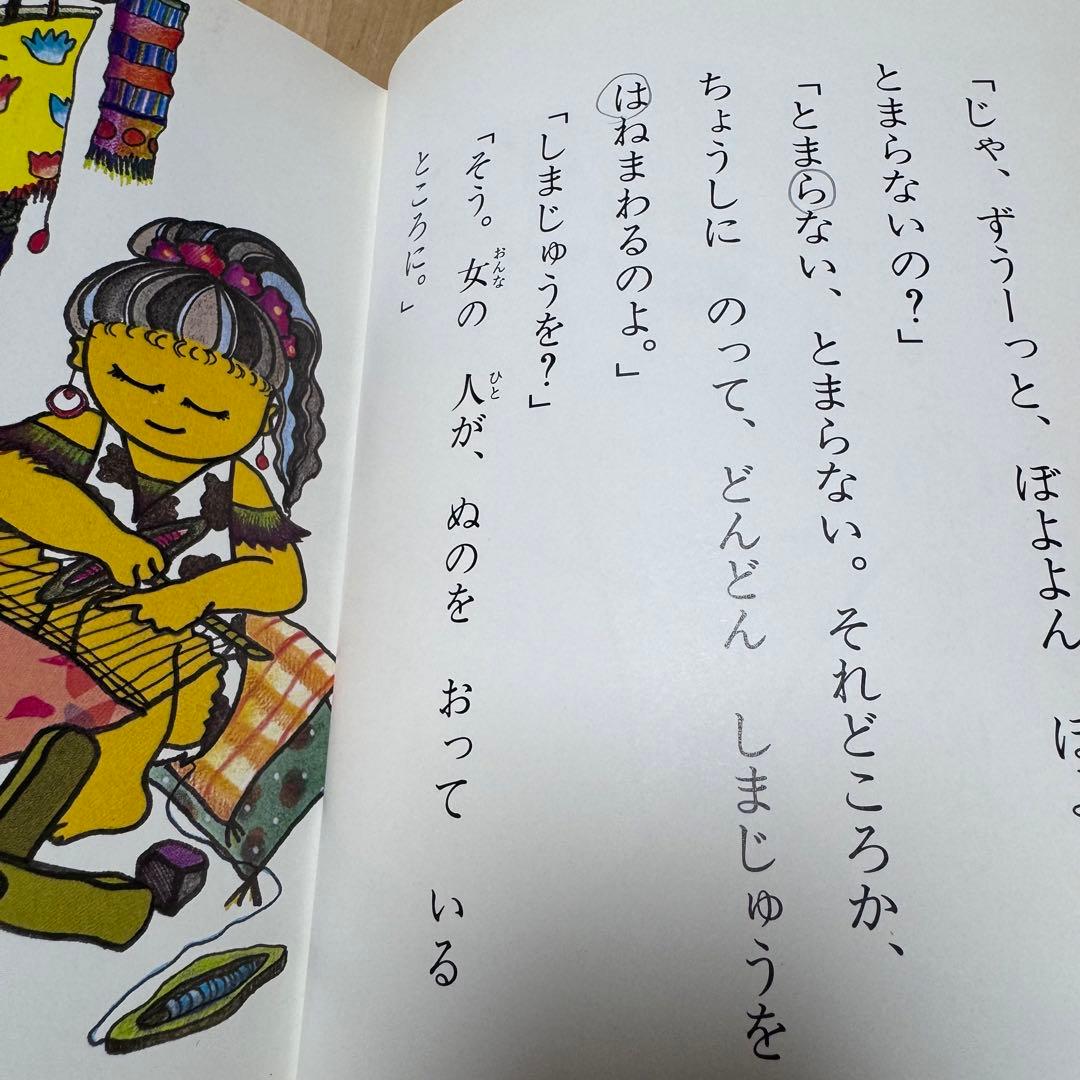 「じゃ、ずうーっと、ぼよよん
とまらないの？」
「とまらない、とまらない。それどころか、
ちょうしに　のって、どんどん　しまじゅうを
はねまわるのよ。」
「しまじゅうを？」
「そう。女の　人が、ぬのを　おって　いる
ところに。」
おんな
ひと